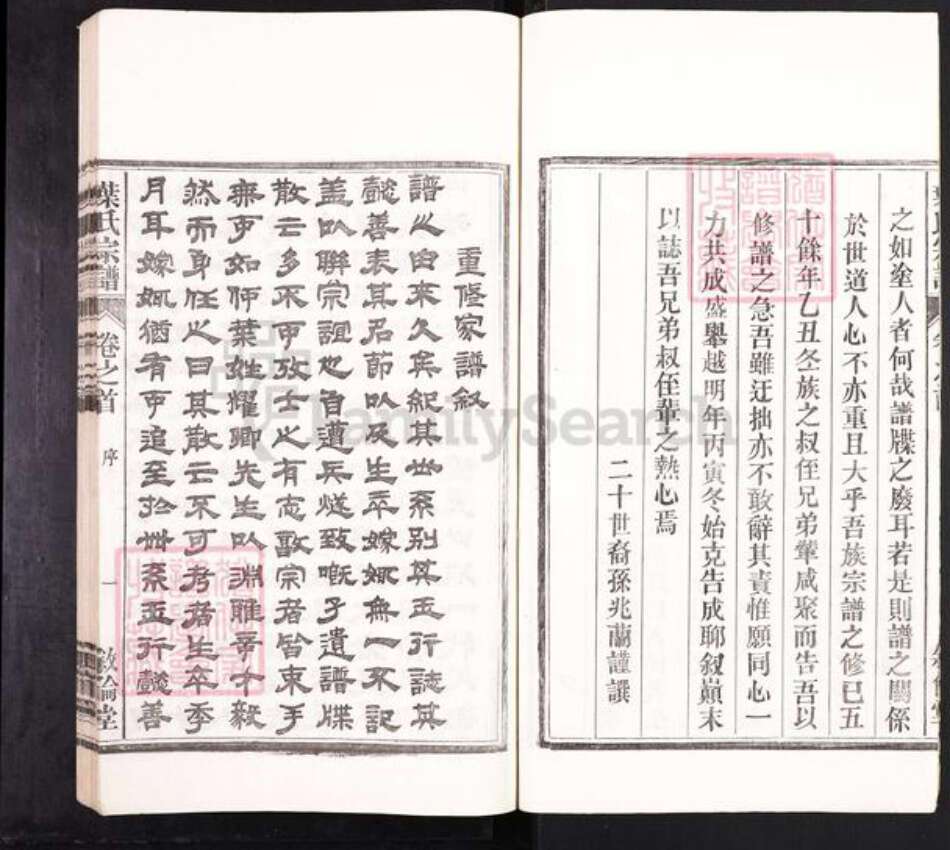 之如塗人者何哉譜牒之廢耳若是則譜之關係
於世道人心不亦重且大乎吾族宗譜之修已五
十餘年乙丑冬族之叔侄兄弟輩咸聚而告吾以
修譜之急吾雖迂拙亦不敢辭其責惟願同心一
力共成盛舉越明年丙寅冬始克告成聊叙巔末
以誌吾兄弟叔侄輩之熱心焉
二十世裔孫兆蘭謹譔
重修家譜叙
譜之由來久矣紀其世系別其五行誌其
懿善表其名節以及生卒嫁娵無一不記
蓋以聯宗誼也自遭兵燹致嘅孑遺譜牒
散亡多不可攷士之有志敬宗者皆束手
無可如何葉姓耀卿先生以淵雅辛才毅
然而身任之曰其散亡不可考者生卒季
月耳嫁娵猶有可追至於世系五行懿善
葉氏宗譜
卷之首
序
一
敦倫堂
FamilySearch